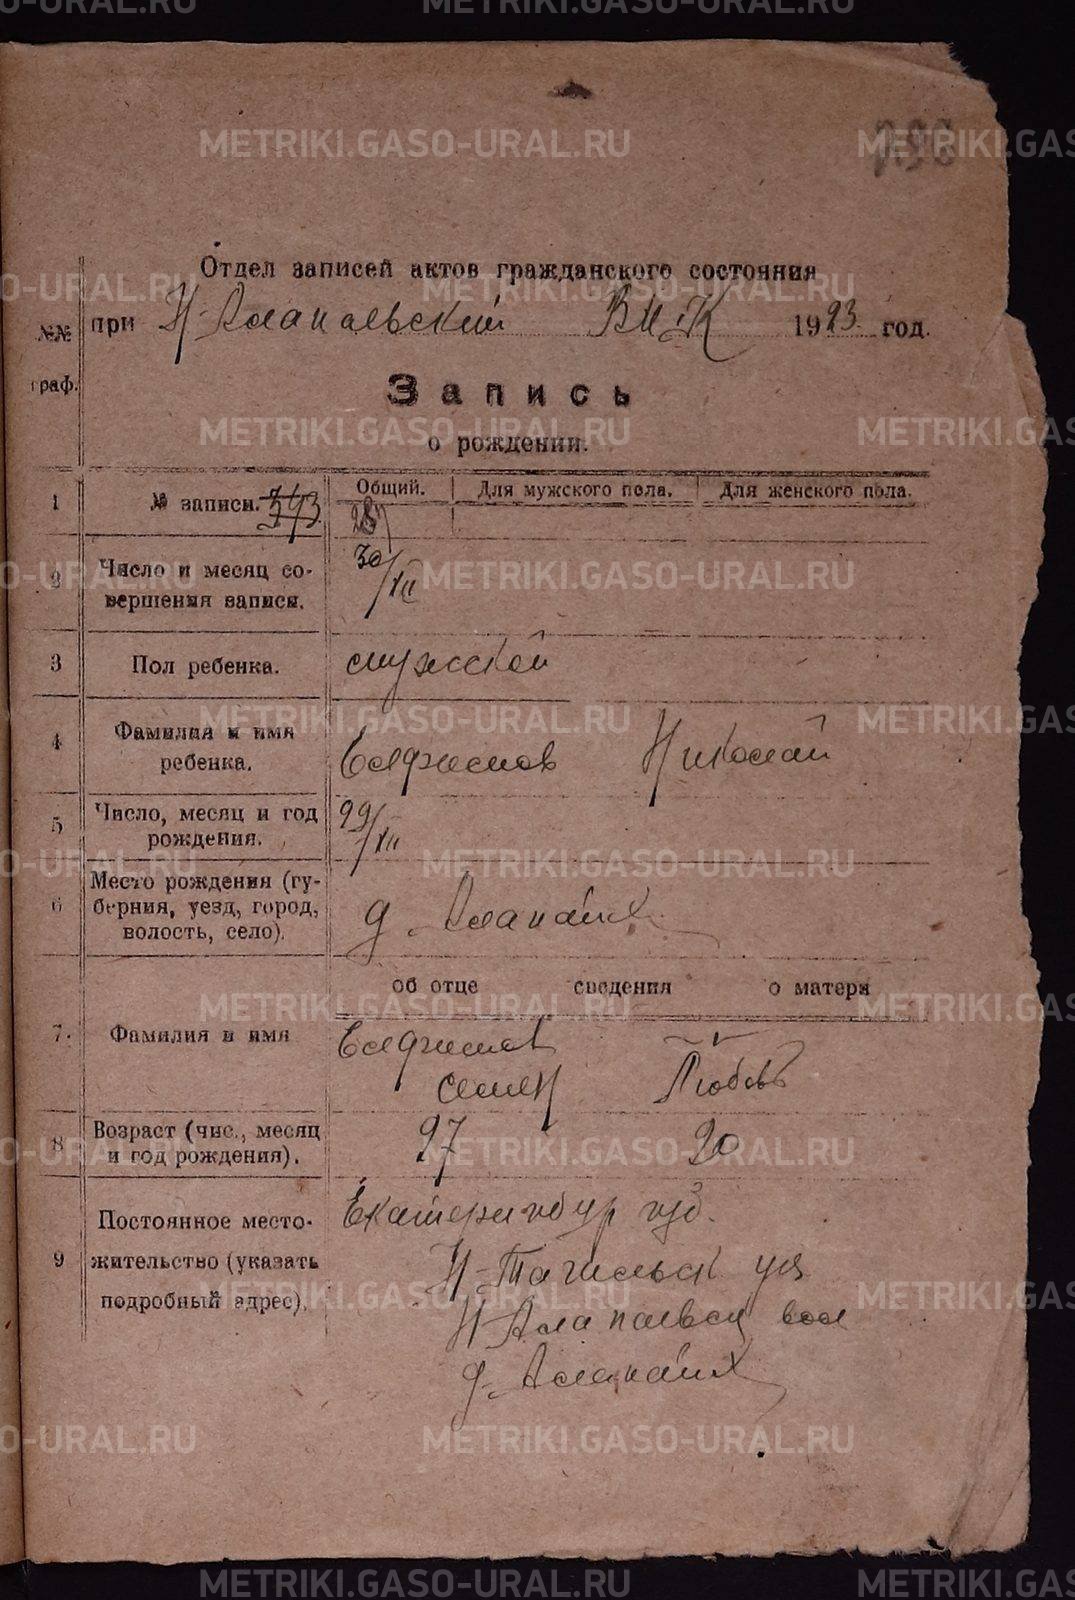 396
Отдел записей актов гражданского состояния
при Н-Алапаевский ВИК 1923 год.
№№ граф.
Запись
о рождении.
1 № записи. 343 Общий. Для мужского пола. Для женского пола.
287
2 Число и месяц со- 30/XII
вершения записи.
3 Пол ребенка. мужской
4 Фамилия и имя
ребенка. Евфимов Николай
5 Число, месяц и год 29/XII
рождения.
Место рождения (гу-
6 берния, уезд, город, д. Алапаиха
волость, село).
об отце сведения о матери
7. Фамилия и имя Евфимов
Семен Любовь
8 Возраст (чис., месяц 27 20
и год рождения).
Постоянное место- Екатеринбур губ.
9 жительство (указать Н-Тагильск уез
подробный адрес). Н-Алапаевск вол
д. Алапаиха
METRIKI.GASO-URAL.RU